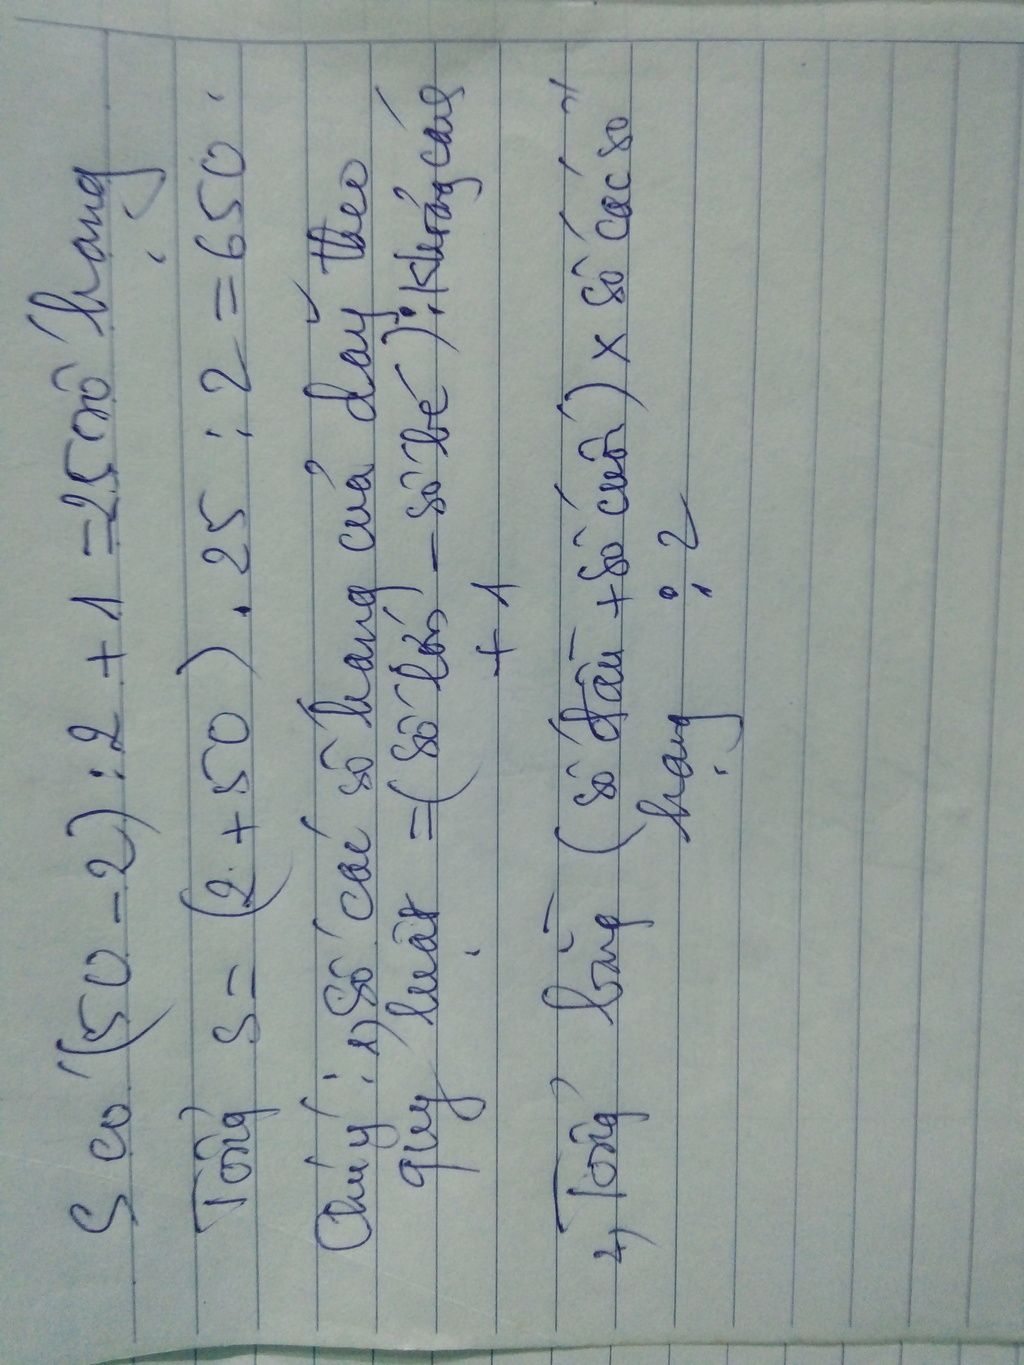 S có (50 - 2) : 2 + 1 = 25 số hạng
Tổng S = (2 + 50) . 25 : 2 = 650 .
Chú ý : 1, Số các số hạng của dãy theo
quy luật = (số lớn - số bé) : khoảng cách
+ 1
2, Tổng bằng (số đầu + số cuối) x số các số
hạng : 2